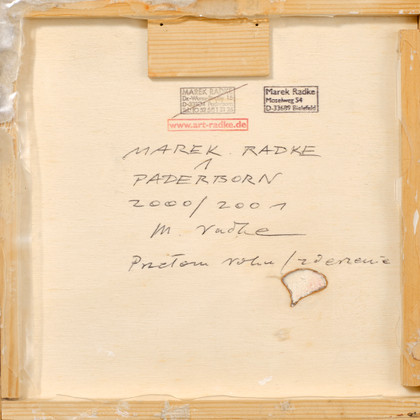 MAREK RADKE
Marek Radke
Moselweg 54
D-33689 Bielefeld
www.art-radke.de
MAREK RADKE
1
PADERBORN
2000/2001
M Radke
Przełom roku / zderzenie